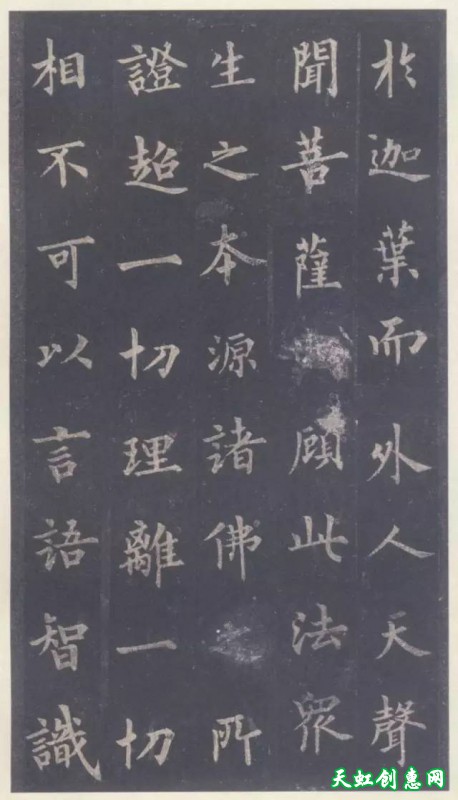 於迦葉而外人天聲
聞菩薩顧此法眾
生之本源諸佛所
證超一切理離一切
相不可以言語智識
天虹创惠网